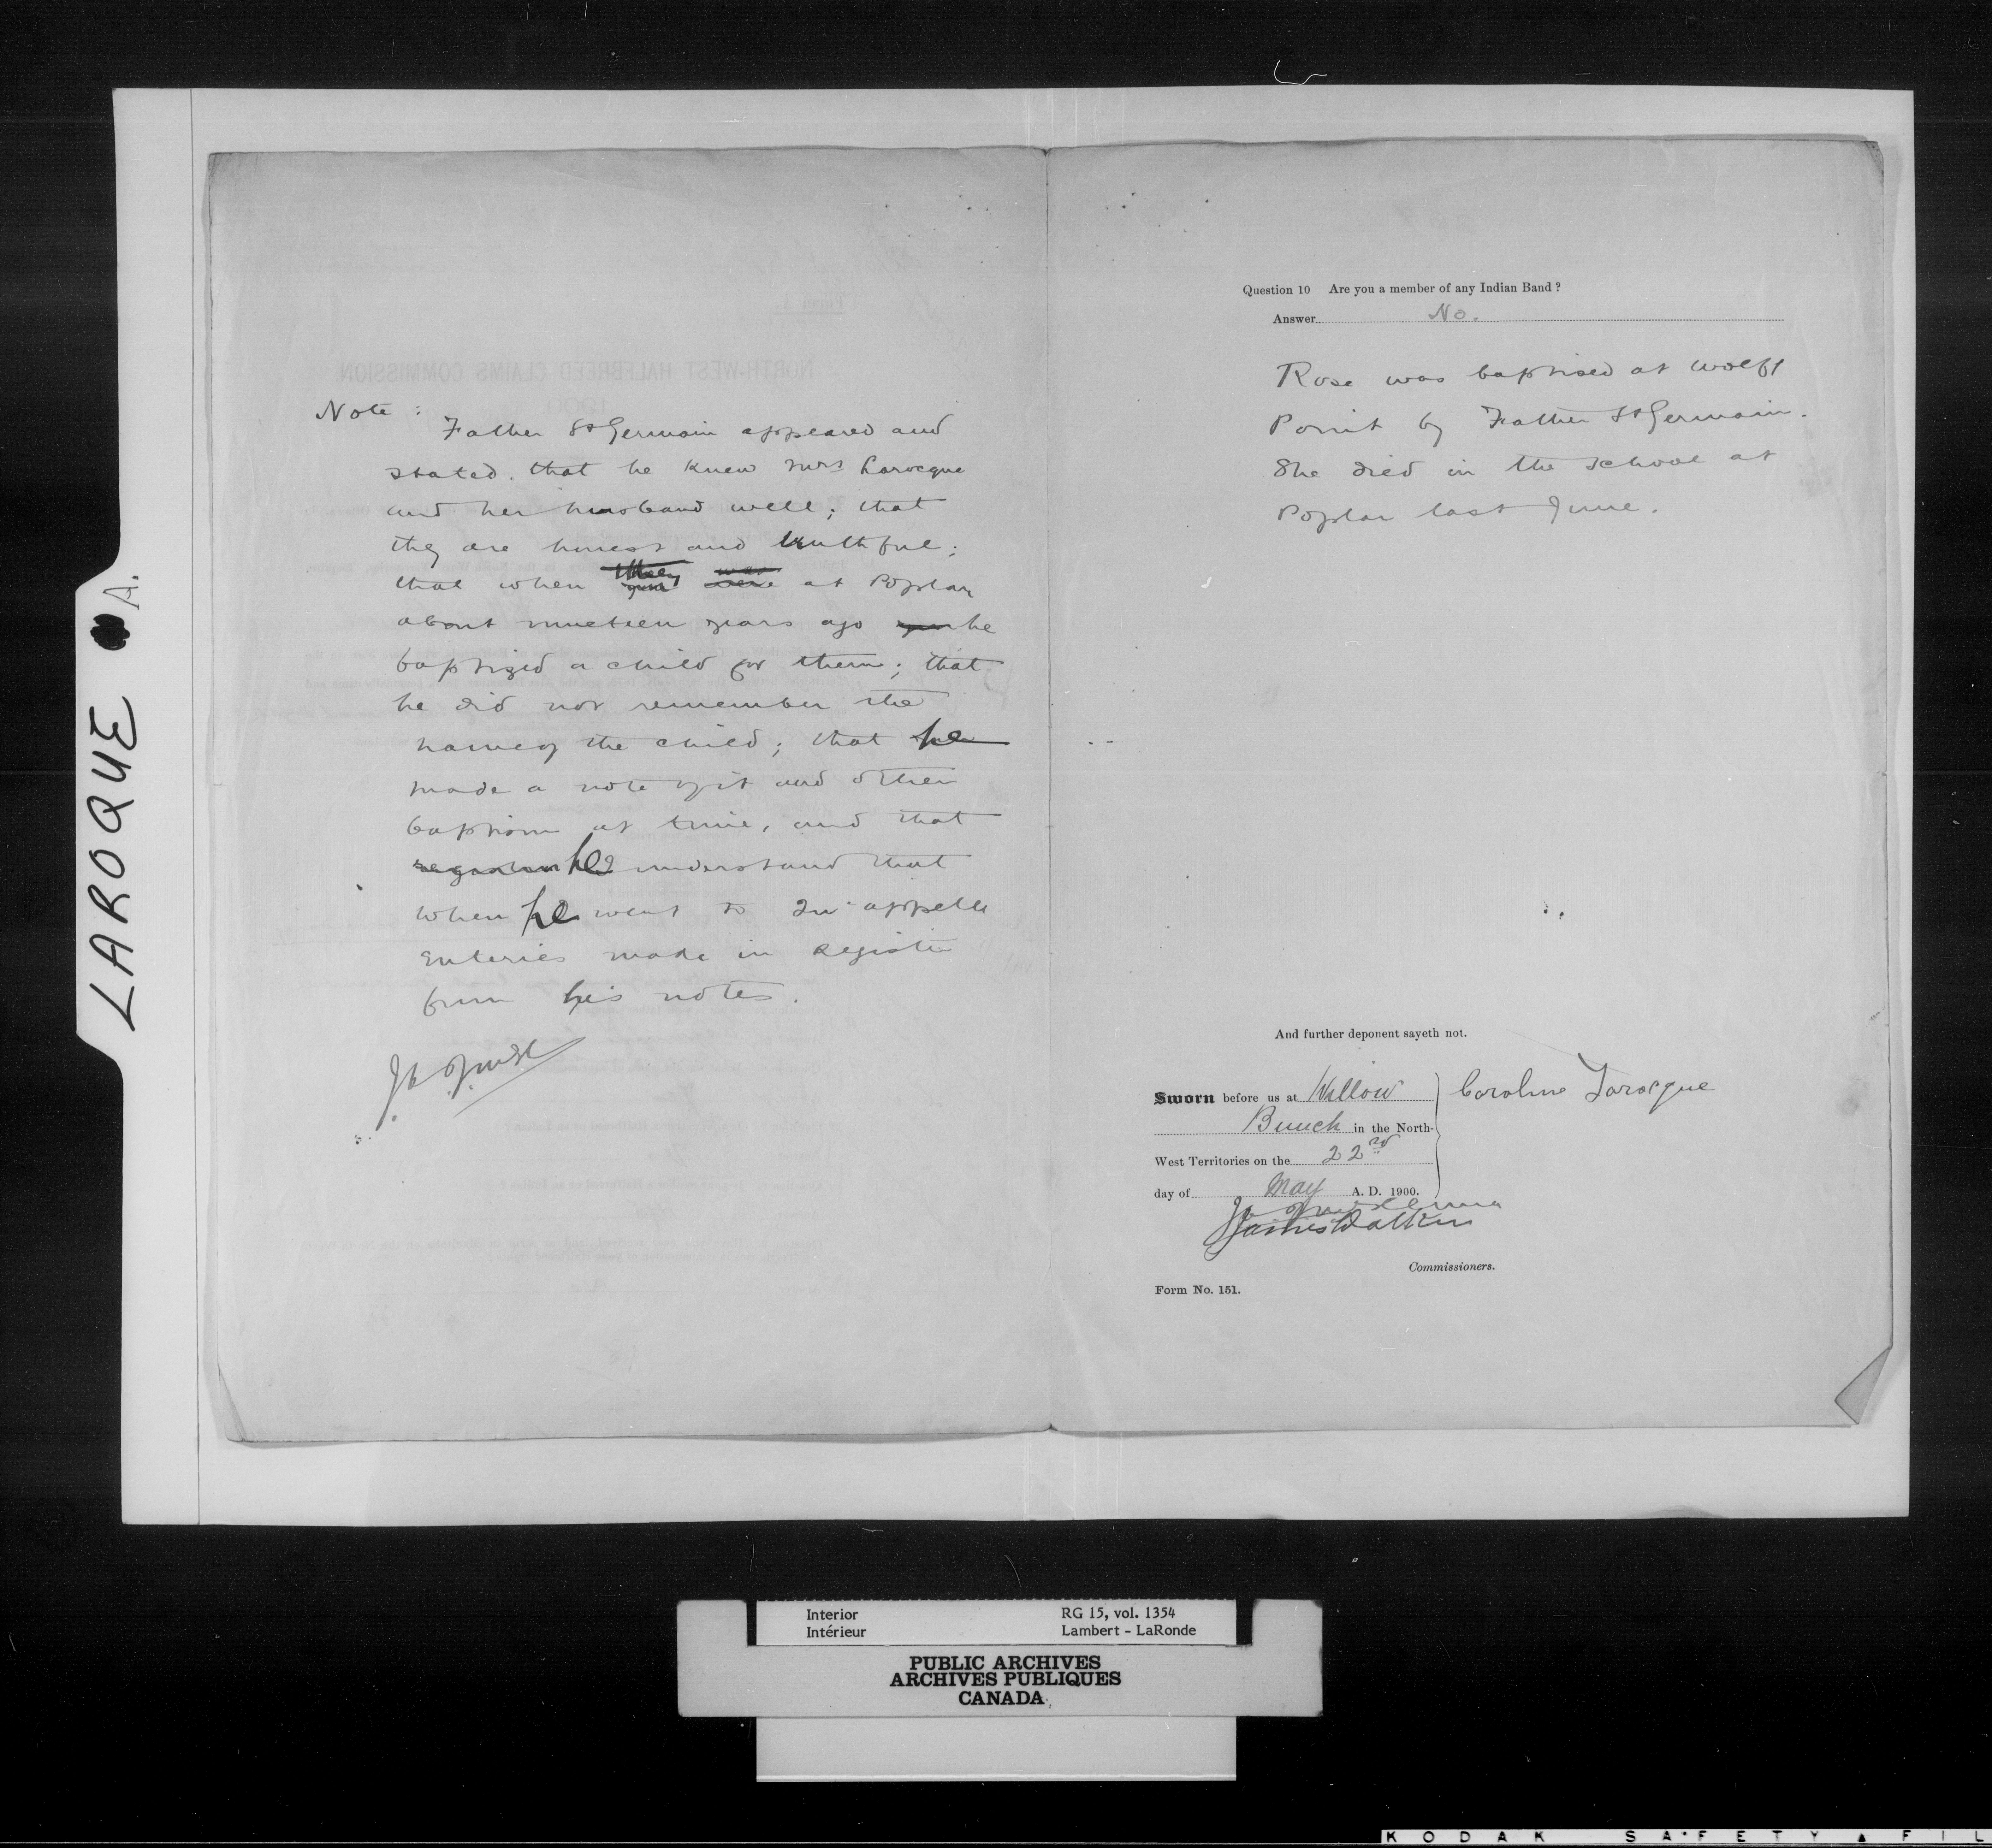 LAROQUE A.
Note :
Father St Germain appeared and
stated. that he knew Mrs Larocque
and her husband well; that
they are honest and truthful;
that when they were at Poplar
about nineteen years ago he
baptized a child for them; that
he did not remember the
name of the child; that he
made a note of it and other
baptism at time, and that
he understand that
when he went to Qu'appelle
enteries made in register
from his notes.
Question 10 Are you a member of any Indian Band ?
Answer No.
Rose was baptised at Wolff
Point by Father St Germain.
She died in the school at
Poplar last June.
And further deponent sayeth not.
Sworn before us at Willow
Bunch in the North-
West Territories on the 22nd
day of May A. D. 1900.
Caroline Larocque
James Walker
Commissioners.
Form No. 151.
Interior
Intérieur
RG 15, vol. 1354
Lambert - LaRonde
PUBLIC ARCHIVES
ARCHIVES PUBLIQUES
CANADA
KODAK SAFETY FIL